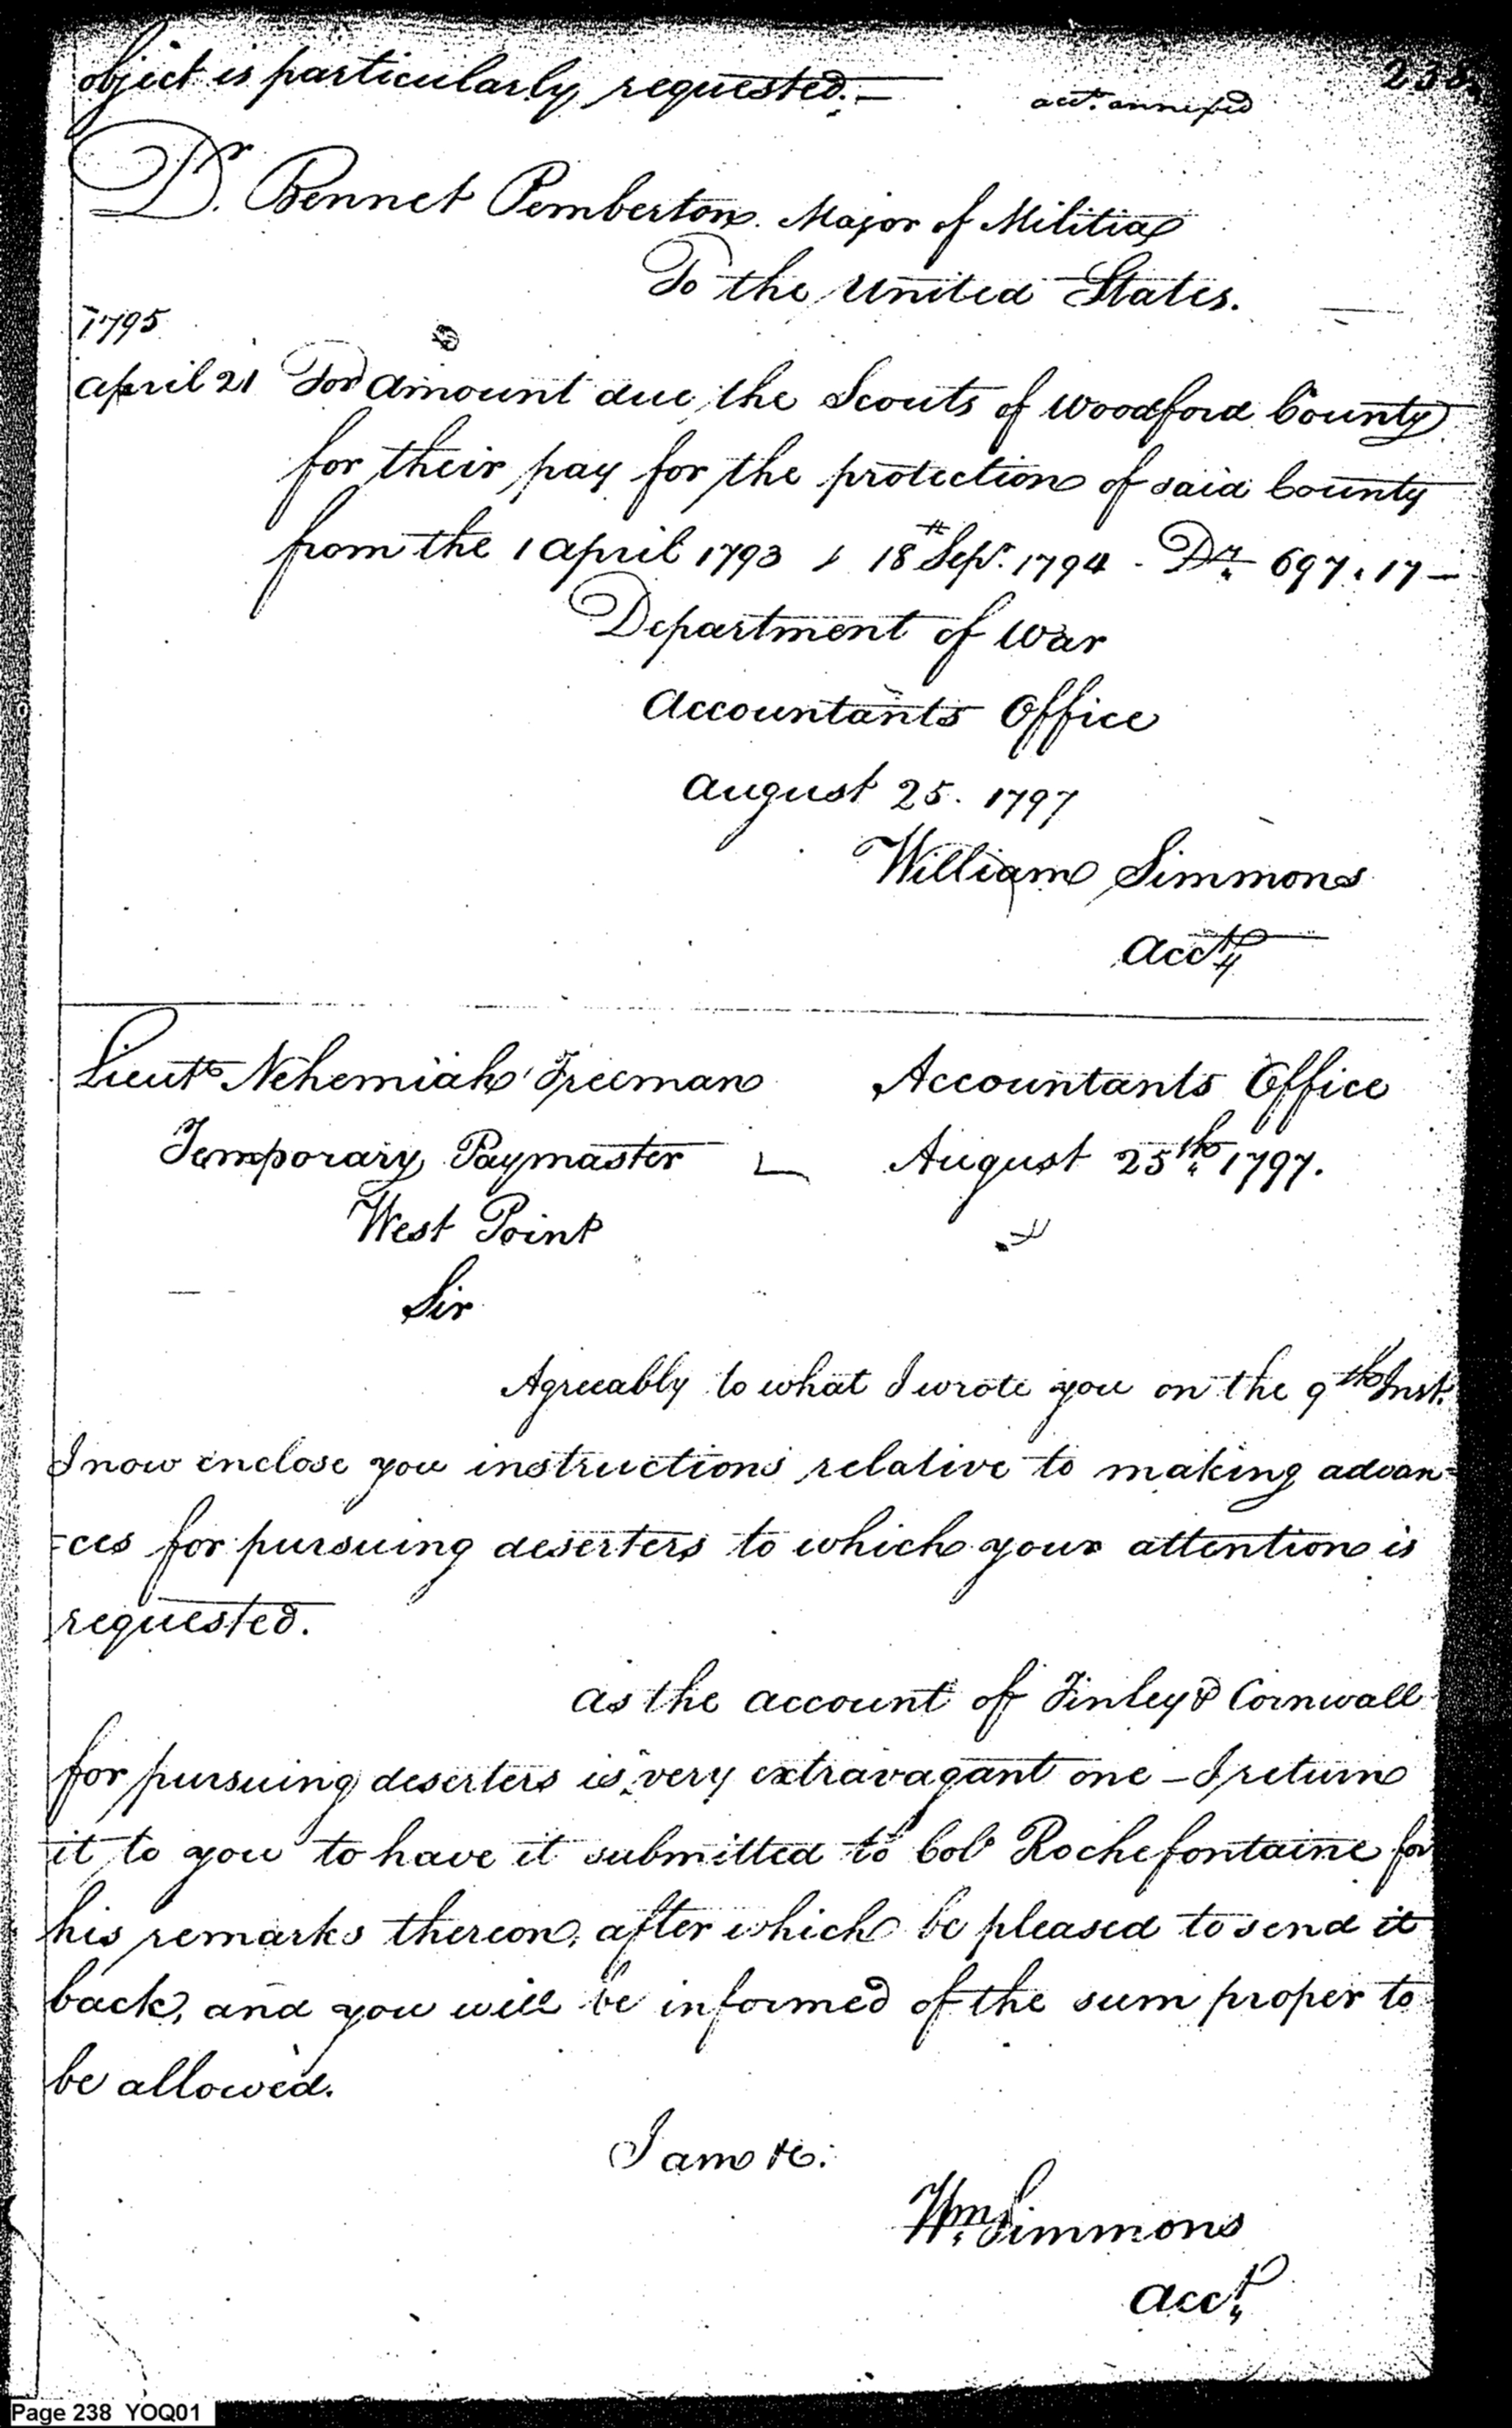 238.
object is particularly requested.—
acct. annexed
Dr. Bennet Pemberton. Major of Militia
To the United States.
1795
april 21 For amount due the Scouts of Woodford County
for their pay for the protection of said County
from the 1 april 1793 18th Sepr. 1794 - Drs 697.17—
Department of War
Accountants Office
August 25. 1797
William Simmons
Acct
Lieut Nehemiah Freeman
Accountants Office
Temporary Paymaster
August 25th 1797.
West Point
Sir
Agreeably to what I wrote you on the 9th Inst.
I now enclose you instructions relative to making advan-
-ces for pursuing deserters to which your attention is
requested.
as the account of Finley & Cornwall
for pursuing deserters is very extravagant one – I return
it to you to have it submitted to Col Rochefontaine for
his remarks thereon, after which be pleased to send it
back, and you will be informed of the sum proper to
be allowed.
I am &c:
Wm Simmons
Acct
Page 238 YOQ01